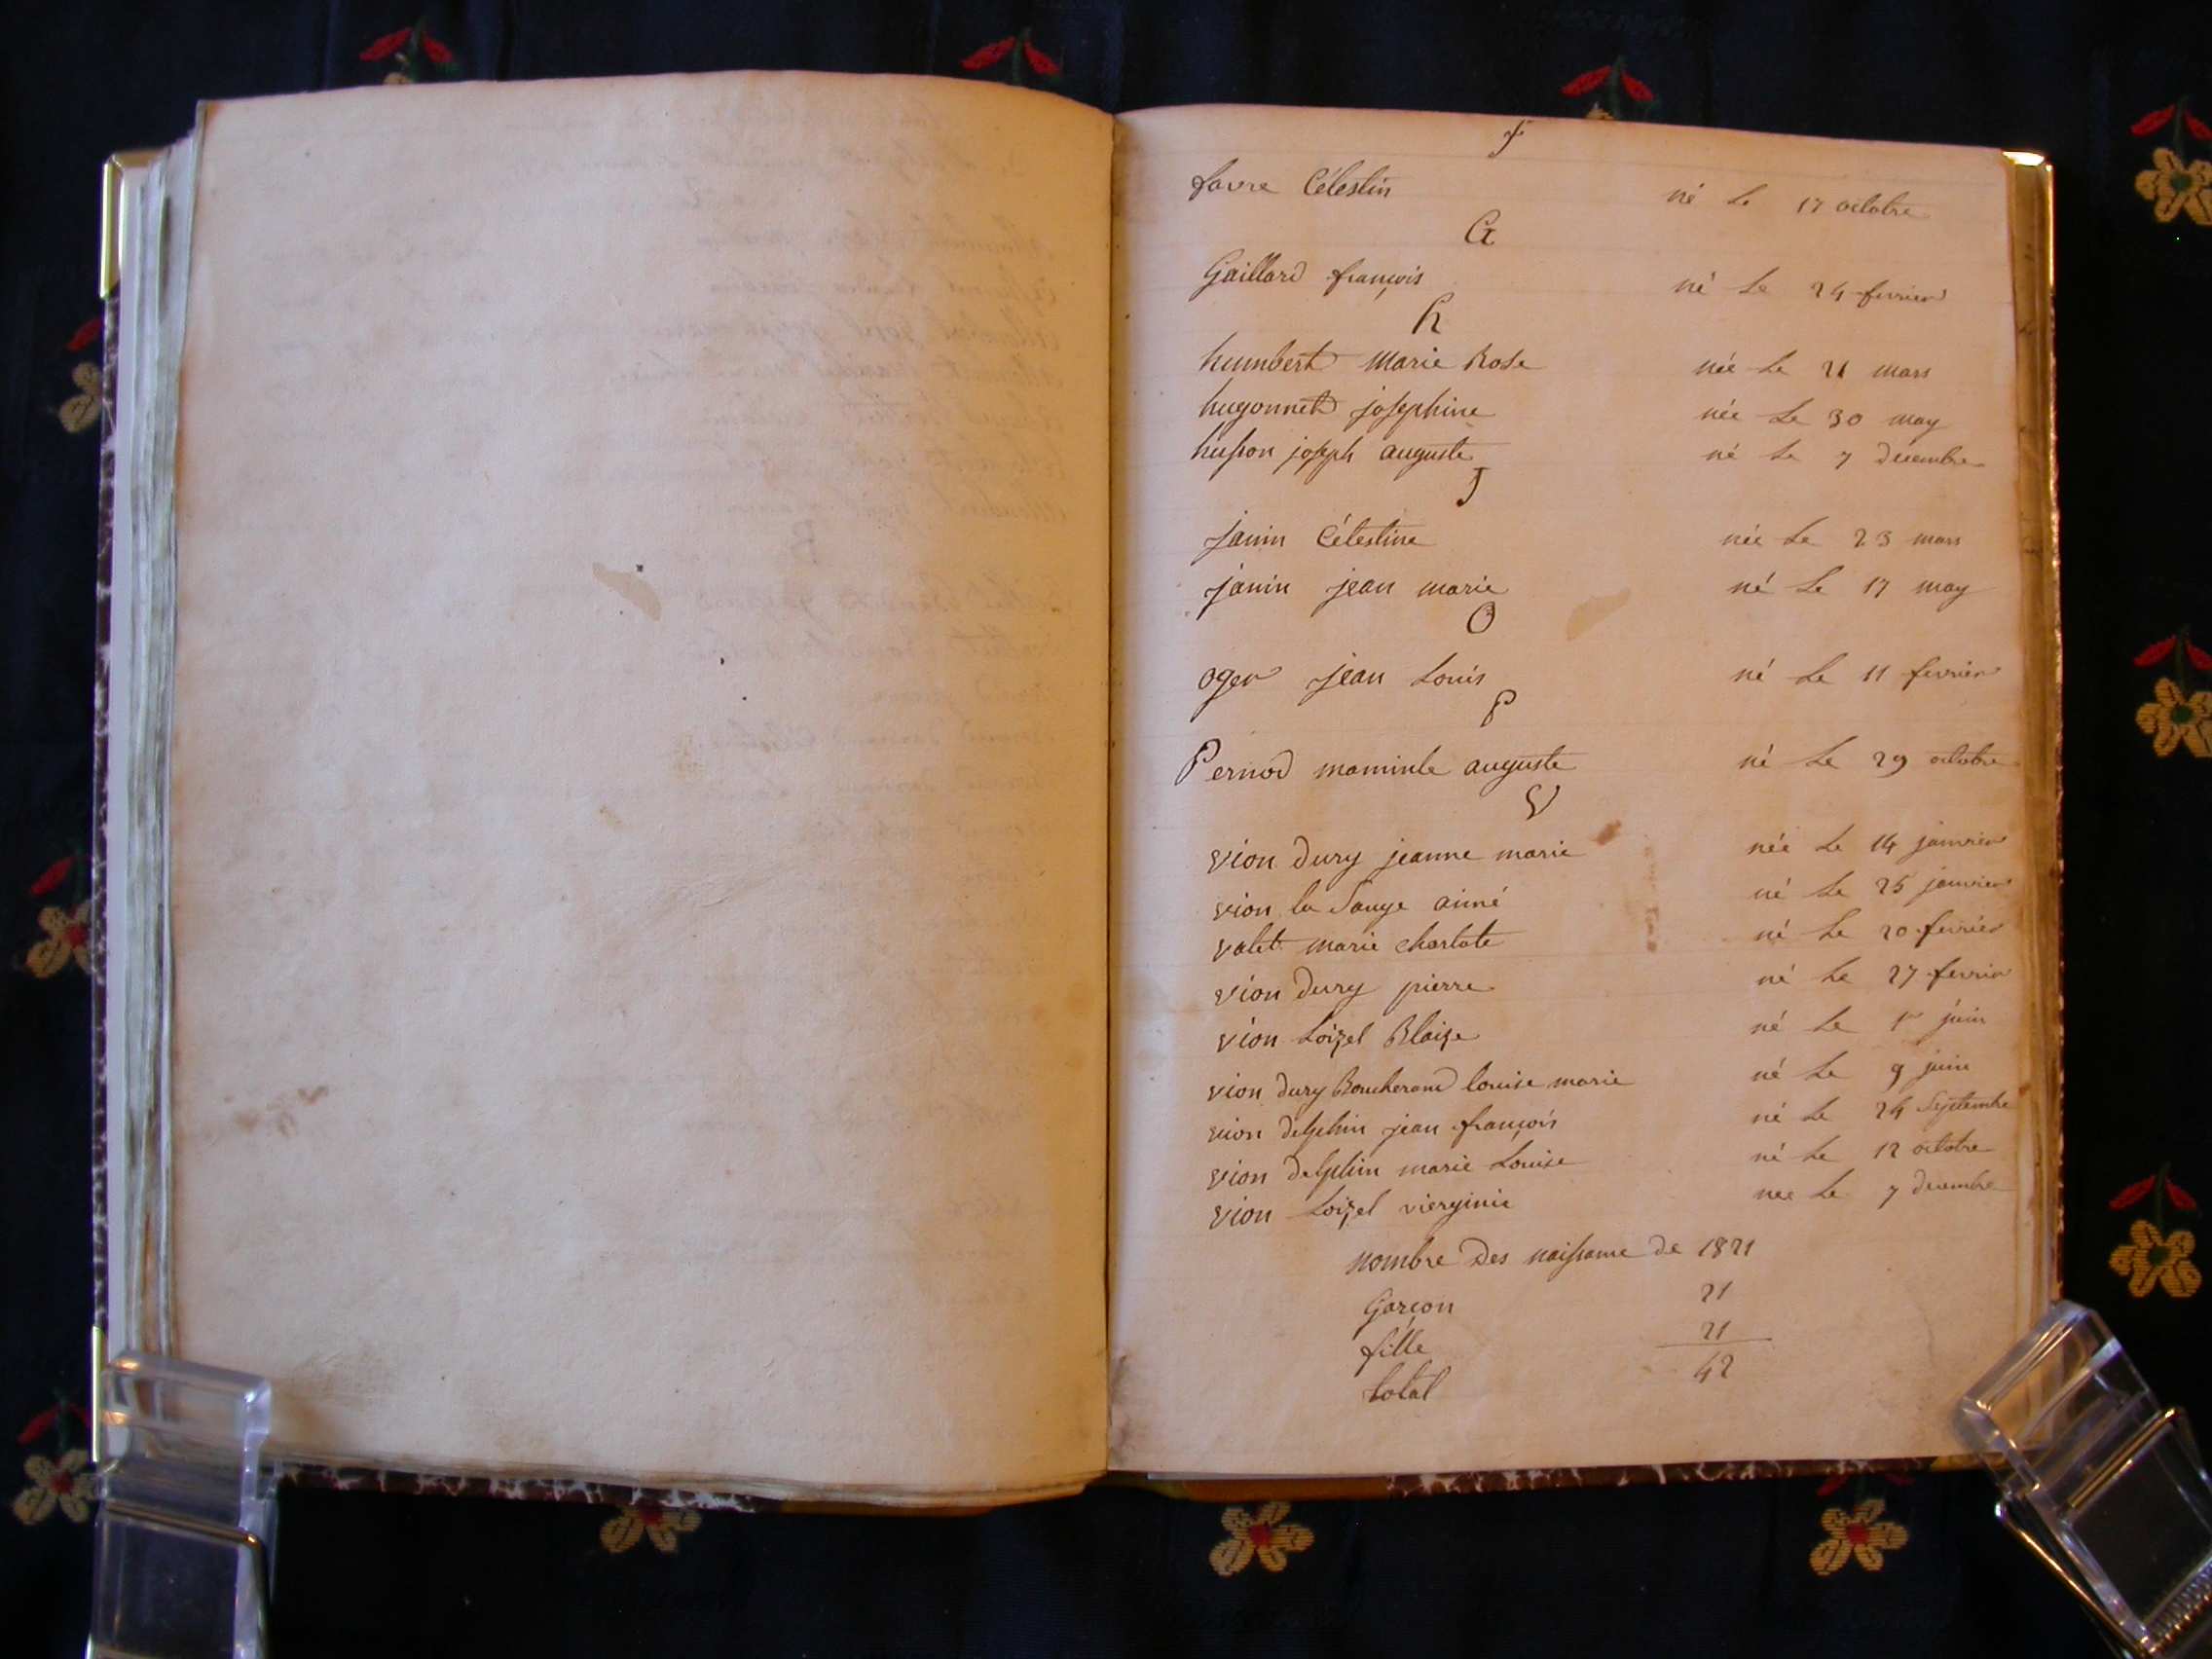 F
favre Célestin né Le 17 octobre
G
Gaillard françois né Le 24 fevrier
h
humbert Marie Rose née Le 21 mars
hugonnet josephine née Le 30 may
husson joseph auguste né Le 7 decembre
J
janin Célestine née Le 23 mars
janin jean marie né Le 17 may
O
oger jean Louis né Le 11 fevrier
P
Pernod auguste né Le 29 octobre
V
vion dury jeanne marie née Le 14 janvier
vion la Sauge aimé né Le 25 janvier
valet marie charlote né Le 20 fevrier
vion dury pierre né Le 27 fevrier
vion Loizel Blaize né Le juin
vion dury Boucherand louise marie né Le 9 juin
vion delphin jean françois né Le 24 Septembre
vion delphin marie Louise né Le 12 octobre
vion Loizel vierginie née Le 7 decembre
nombre Des naissance de 1821
Garçon 21
fille 21
total 42